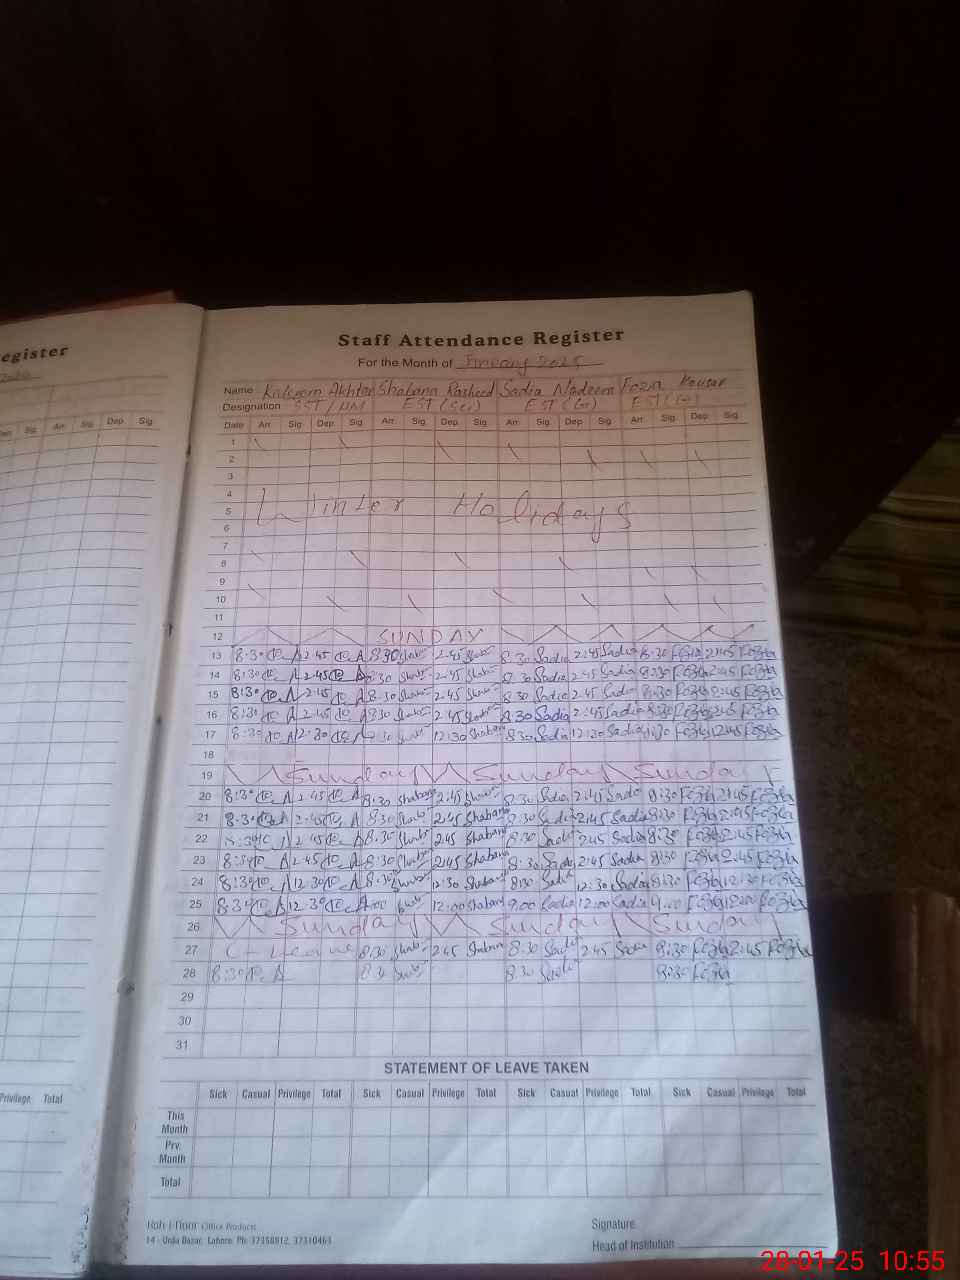 egister
Sig. Arr. Sig. Dep. Sig.
Privilege Total
Staff Attendance Register
For the Month of January 2025
Name Kalsoom Akhtar Shabana Rasheed Sadia Nadeem Fozia Kousar
Designation SST/HM EST (Sci) EST (G) EST (G)
Date Arr. Sig. Dep. Sig. Arr. Sig. Dep. Sig. Arr. Sig. Dep. Sig. Arr. Sig. Dep. Sig.
1
2
3
4
5 Winter Holidays
6
7
8
9
10
11
12 SUNDAY
13 8:30 2:45 8:30 Shab 2:45 Shab 8:30 Sadia 2:45 Sadia 8:30 Fozia 2:45 Fozia
14 8:30 2:45 8:30 Shab 2:45 Shab 8:30 Sadia 2:45 Sadia 8:30 Fozia 2:45 Fozia
15 8:30 2:45 8:30 Shab 2:45 Shab 8:30 Sadia 2:45 Sadia 8:30 Fozia 2:45 Fozia
16 8:30 2:45 8:30 Shab 2:45 Shab 8:30 Sadia 2:45 Sadia 8:30 Fozia 2:45 Fozia
17 8:30 12:30 8:30 12:30 Shabana 8:30 Sadia 12:30 Sadia 8:30 Fozia 12:45 Fozia
18
19 Sunday Sunday Sunday
20 8:30 2:45 8:30 Shabana 2:45 8:30 Sadia 2:45 Sadia 8:30 Fozia 2:45 Fozia
21 8:30 2:45 8:30 2:45 Shabana 8:30 Sadia 2:45 Sadia 8:30 Fozia 2:45 Fozia
22 8:30 2:45 8:30 2:45 Shabana 8:30 Sadia 2:45 Sadia 8:30 Fozia 2:45 Fozia
23 8:30 2:45 8:30 2:45 Shabana 8:30 Sadia 2:45 Sadia 8:30 Fozia 2:45 Fozia
24 8:30 12:30 8:30 12:30 Shabana 8:30 Sadia 12:30 Sadia 8:30 Fozia 12:30 Fozia
25 8:30 12:30 12:00 Shabana 9:00 Sadia 12:00 Sadia Fozia Fozia
26 Sunday Sunday Sunday
27 C-Leave 8:30 Shab 2:45 Shabana 8:30 Sadia 2:45 Sadia 8:30 Fozia 2:45 Fozia
28 8:30 8:30 Shab 8:30 Sadia 8:30 Fozia
29
30
31
STATEMENT OF LEAVE TAKEN
Sick Casual Privilege Total Sick Casual Privilege Total Sick Casual Privilege Total Sick Casual Privilege Total
This Month
Prv. Month
Total
Koh-i-Noor Office Products
14 - Urdu Bazar, Lahore. Ph: 37358912, 37310463
Signature
Head of Institution
28-01-25 10:55